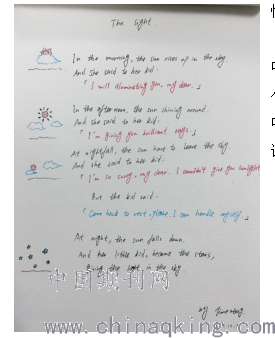 The light.
In the morning, the sun rises up in the sky.
And she said to her kid.
「I will illuminating you, my dear.」
In the afternoon, the sun shining around.
And she said to her kid.
「I'm giving you brilliant rays.」
At nightfall, the sun have to leave the sky.
And she said to her kid.
「I'm so sorry, my dear. I couldn't give you sunlight
But the kid said.
「Come back to rest, please. I can handle myself.」
At night, the sun falls down.
And her little kid, became the stars,
the light in the sky.
by
中国期刊网
www.chinaqking.com